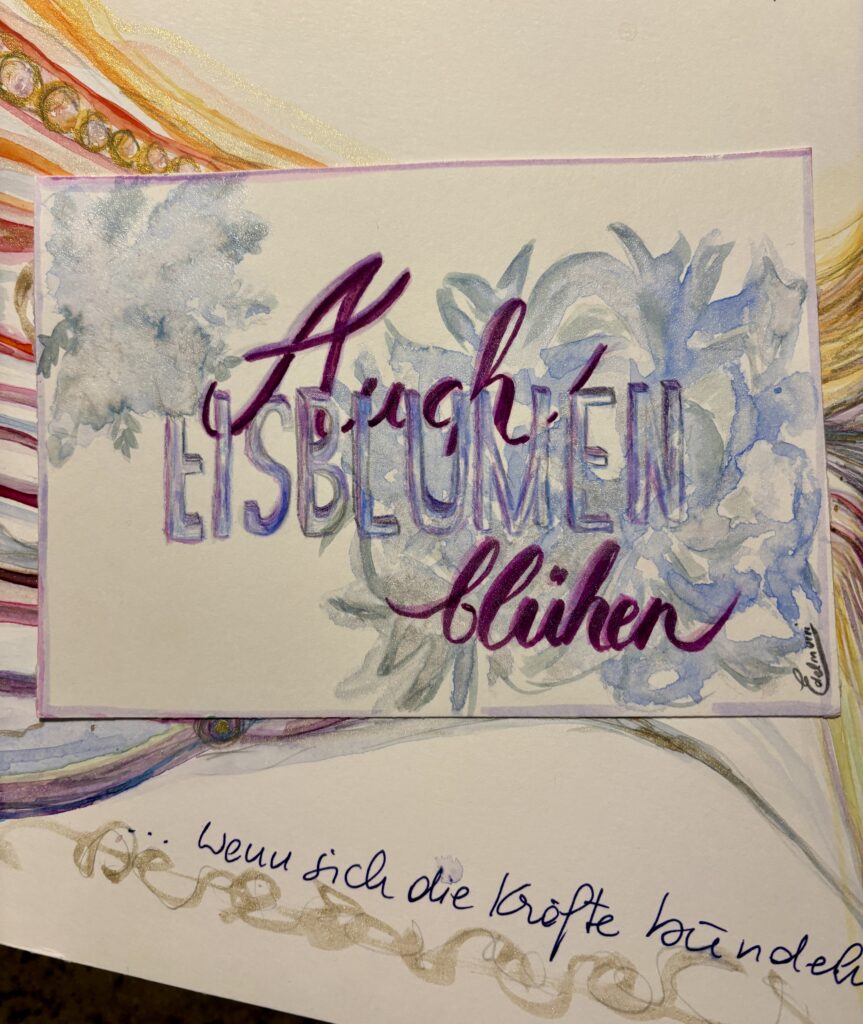 Auch
EISBLUMEN
blühen
Edelmann
... wenn sich die Kräfte bündeln